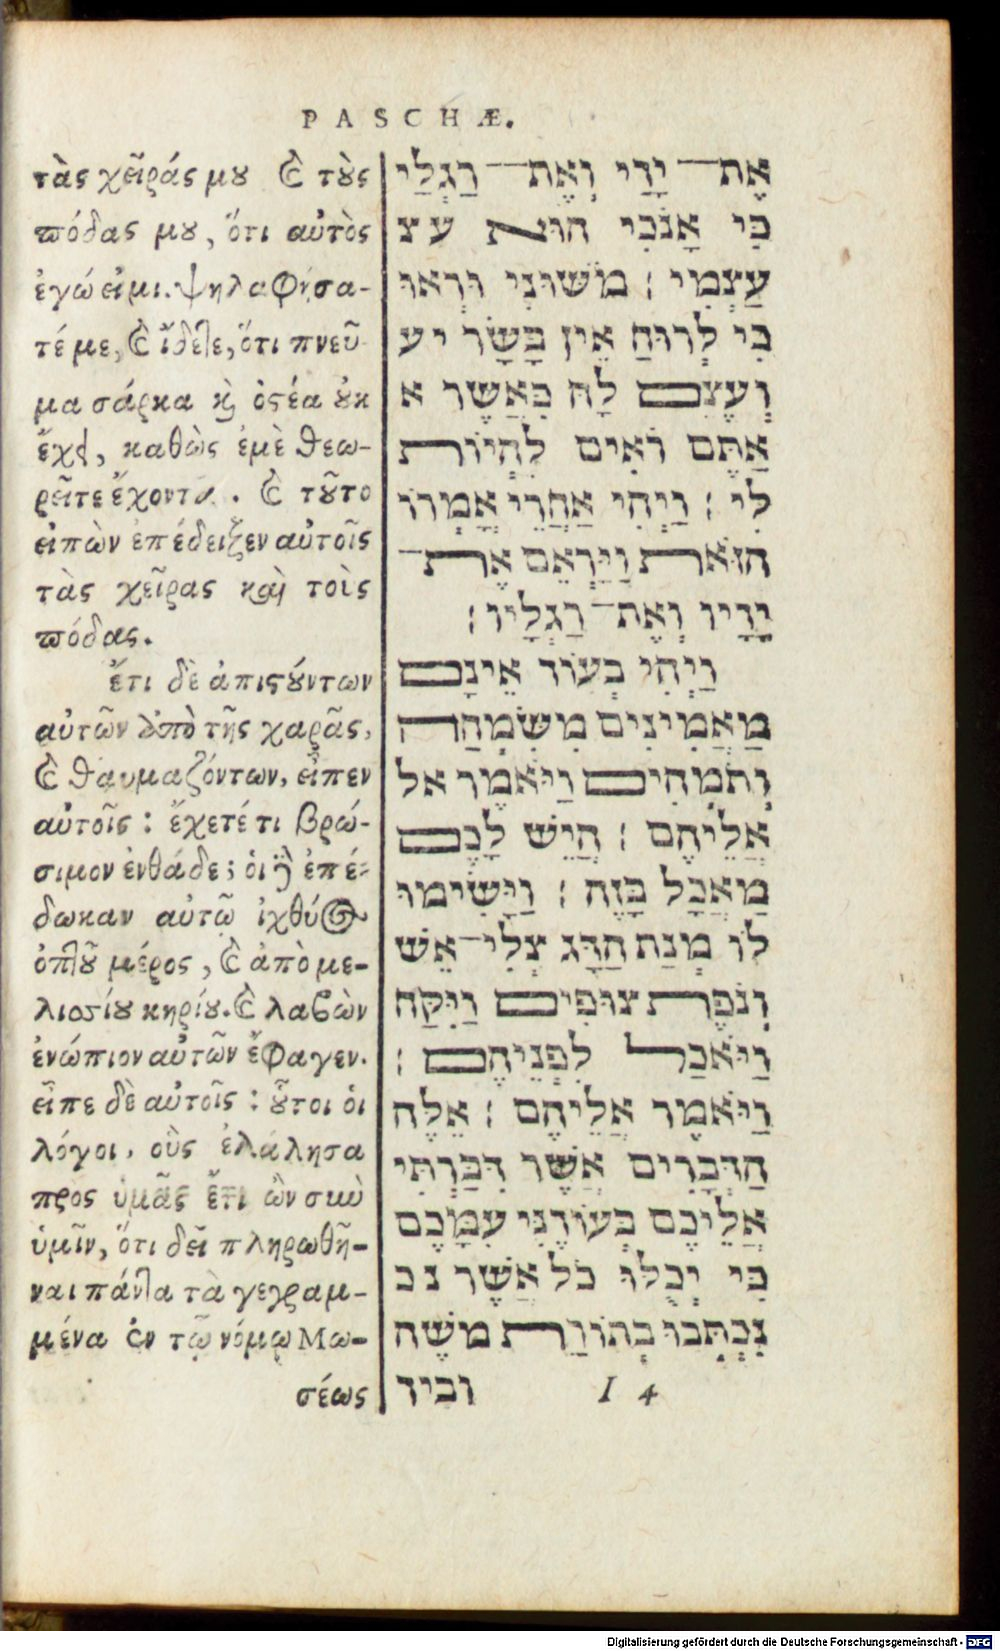 PASCHÆ.
τὰς χεῖράς μου Καὶ τοὺς
πόδας μου, ὅτι αὐτὸς
ἐγώ εἰμι. ψηλαφήσα-
τέ με, Καὶ ἴδετε, ὅτι πνεῦ
μα σάρκα καὶ ὀστέα οὐκ
ἔχει, καθὼς ἐμὲ θεω-
ρεῖτε ἔχοντα. Καὶ τοῦτο
εἰπὼν ἐπέδειξεν αὐτοῖς
τὰς χεῖρας καὶ τοὺς
πόδας.
Ἔτι δὲ ἀπιστούντων
αὐτῶν ἀπὸ τῆς χαρᾶς,
Καὶ θαυμαζόντων, εἶπεν
αὐτοῖς: ἔχετέ τι βρώ-
σιμον ἐνθάδε; οἱ δὲ ἐπέ-
δωκαν αὐτῷ ἰχθύος
ὀπτοῦ μέρος, Καὶ ἀπὸ με-
λισσίου κηρίου. Καὶ λαβὼν
ἐνώπιον αὐτῶν ἔφαγεν.
εἶπε δὲ αὐτοῖς: οὗτοι οἱ
λόγοι, οὓς ἐλάλησα
πρὸς ὑμᾶς ἔτι ὢν σὺν
ὑμῖν, ὅτι δεῖ πληρωθῆ-
ναι πάντα τὰ γεγραμ-
μένα ἐν τῷ νόμῳ Μω-
σέως
אֶת־ יָדַי וְאֶת־ רַגְלַי
כִּי אָנֹכִי הוּא עצ
עַצְמִי ׃ מֹשׁוּנִי וּרְאוּ
כִּי לְרוּחַ אֵין בָּשָׂר יע
וְעֶצֶם לָהּ כַּאֲשֶׁר א
אַתֶּם רֹאִים לִהְיוֹת
לִי ׃ וַיְהִי אַחֲרֵי אָמְרוֹ
הַזֹּאת וַיַּרְאֵם אֶת־
יָדָיו וְאֶת־ רַגְלָיו ׃
וַיְהִי בְּעוֹד אֵינָם
מַאֲמִינִים מִשִּׂמְחָה
וּתְמֵהִים וַיֹּאמֶר אל
אֲלֵיהֶם ׃ הֲיֵשׁ לָכֶם
מַאֲכָל בָּזֶה ׃ וַיָּשִׂימוּ
לוֹ מְנַת הַדָּג צְלִי־ אֵשׁ
וְנֹפֶת צוּפִים וַיִּקַּח
וַיֹּאכַל לִפְנֵיהֶם ׃
וַיֹּאמֶר אֲלֵיהֶם ׃ אֵלֶּה
הַדְּבָרִים אֲשֶׁר דִּבַּרְתִּי
אֲלֵיכֶם בְּעוֹדֶנִּי עִמָּכֶם
כִּי יְכֻלּוּ כֹּל אֲשֶׁר נכ
נִכְתְּבוּ בְּתוֹרַת מֹשֶׁה
וביד
I 4
Digitalisierung gefördert durch die Deutsche Forschungsgemeinschaft - DFG